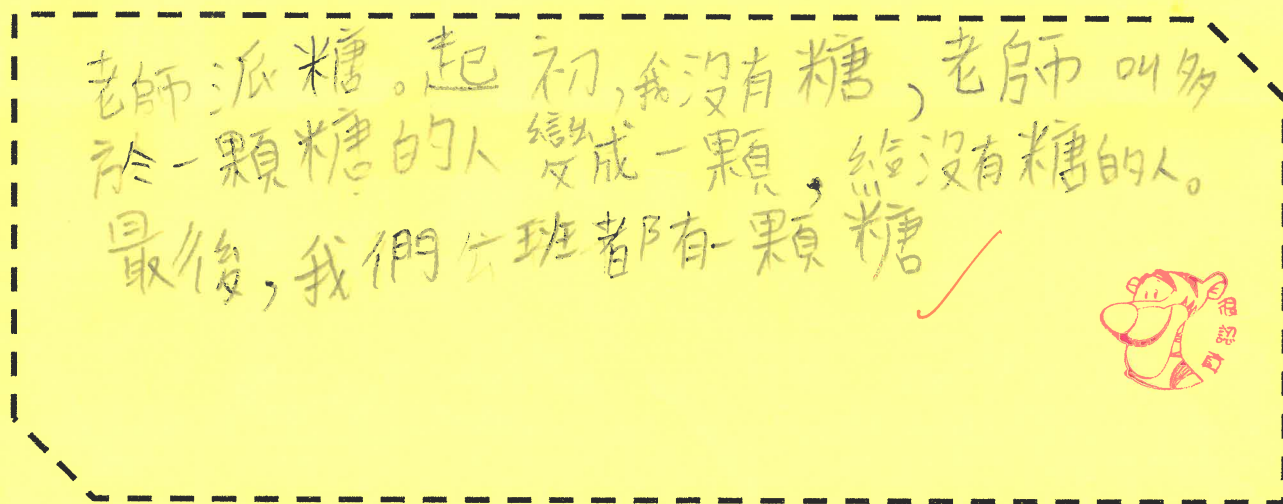 老師派糖。起初,我沒有糖,老師叫多
於一顆糖的人變成一顆,給沒有糖的人。
最後,我們全班都有一顆糖
很認真